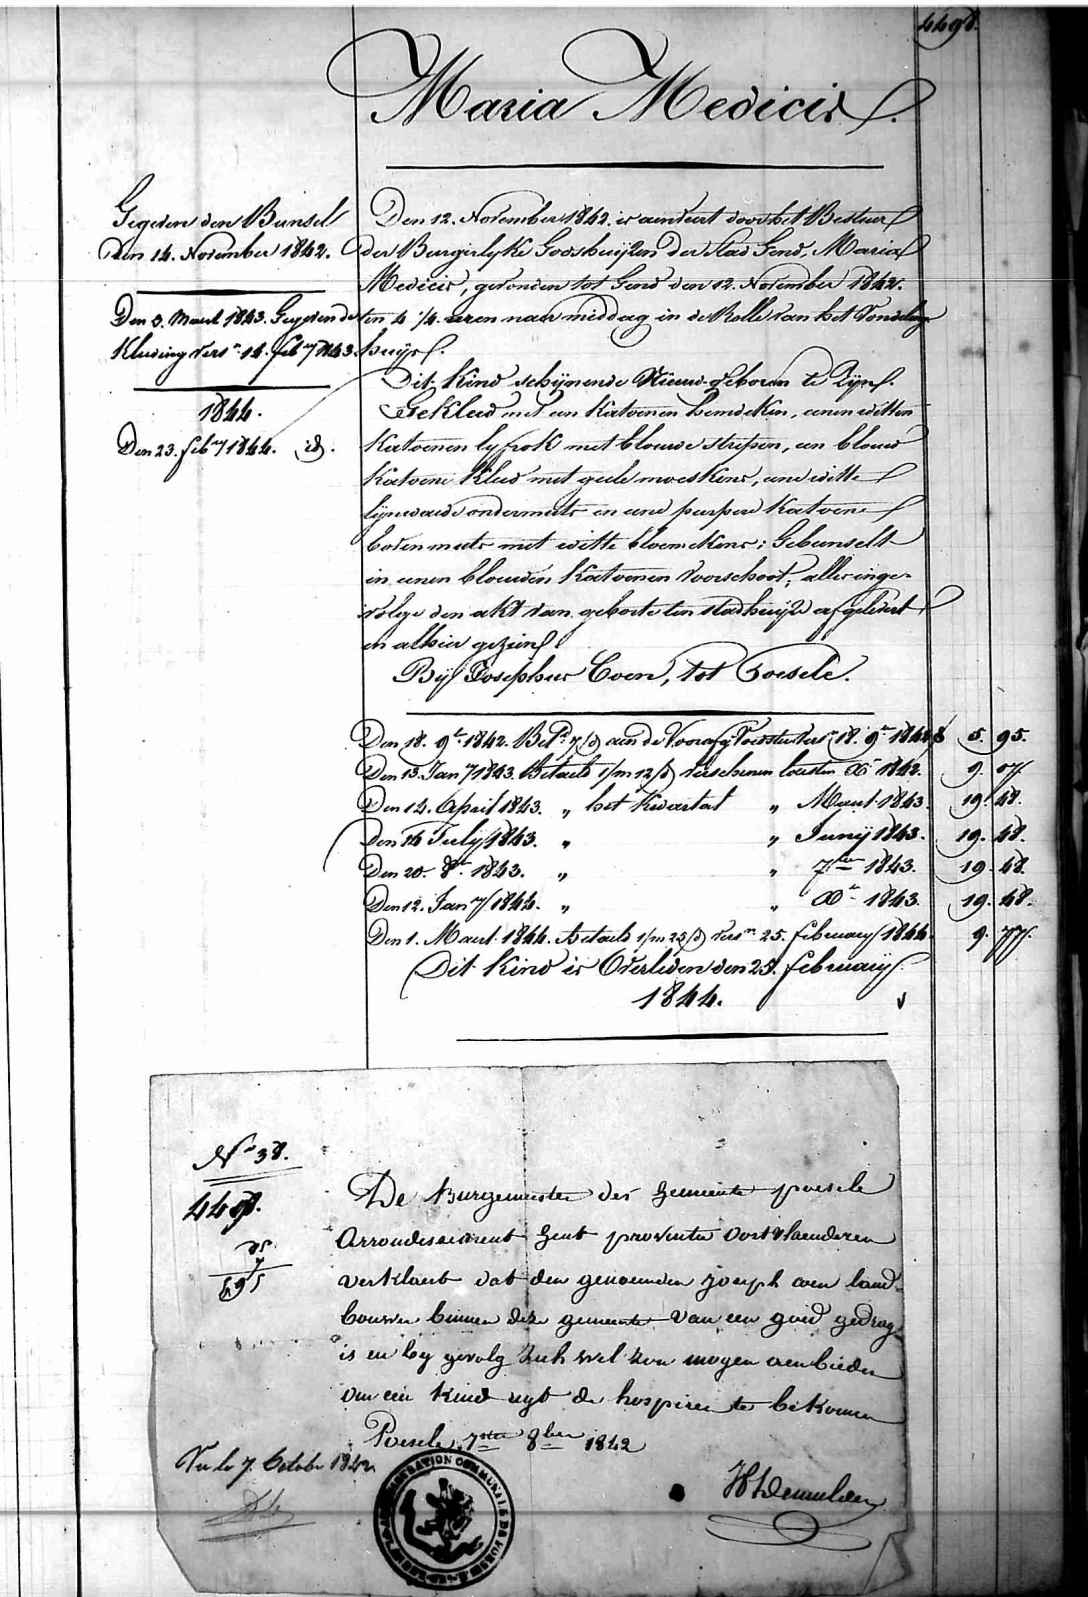 4498.
Maria Medicis.
Gegeven den Bunsel
Den 14. November 1842.
Den 3. Maert 1843. Gegeven de
Kleeding vers.n 14. feb.y 1843.
1844.
Den 23. feb.y 1844. id.
Den 12. November 1842. is aenveirt door het Bestuer
der Burgerlyke Godshuijzen der Stad Gend, Maria
Medicis, gevonden tot Gend den 12. November 1842.
ten 4 1/4 uren naer middag in de Rolle van het Vondeling
huijs.
Dit Kind schijnende Nieuw-geboren te Zijn.
Gekleed met een Katoenen hemdeken, eenen witten
Katoenen lyfrok met blauwe strepen, een blauw
Katoene Kleed met geele moeskens, eene witte
lynwaede ondermuts en eene purpere Katoene
bovenmuts met witte bloemekens; Gebunselt
in eenen blauwen Katoenen Voorschoot; alles inge-
volge den akt van geboorte ten stadhuijze afgelevert
en alhier gezien.
Bij Josephus Coen, tot Poesele.
Den 18. 9.r 1842. Bet.d 7/d aen de Voorafg Voedster vers 18. 9.r 1842 5. 95.
Den 13. Jan.y 1843. Betaeld 1/m 12/d verschenen laesten X.r 1842. 9. 07.
Den 14. April 1843. „ het Kwartael „ Maert 1843. 19. 48.
Den 14 July 1843. „ „ Junij 1843. 19. 48.
Den 20. 8.r 1843. „ „ 7ber 1843. 19. 48.
Den 12. Jan.y 1844. „ „ X.r 1843. 19. 48.
Den 1. Maert 1844. Betaeld 1/m 25/d vers.n 25. february 1844. 9. 77.
Dit Kind is Overleden den 25. februarij
1844.
N.o 38.
4498.
De Burgemeester der gemeente poesele
Arrondissement gent provintie oostvlaenderen
verklaert dat den genoemden joseph coen land-
bouwer binnen deze gemeente van een goed gedrag
is en by gevolg zich wel zou mogen aenbieden
om een kind uyt de hospicen te bekomen
Poesele 7sten 8ber 1842
Vu le 7. Octobre 1842
ADMINISTRATION COMMUNALE DE POESELE